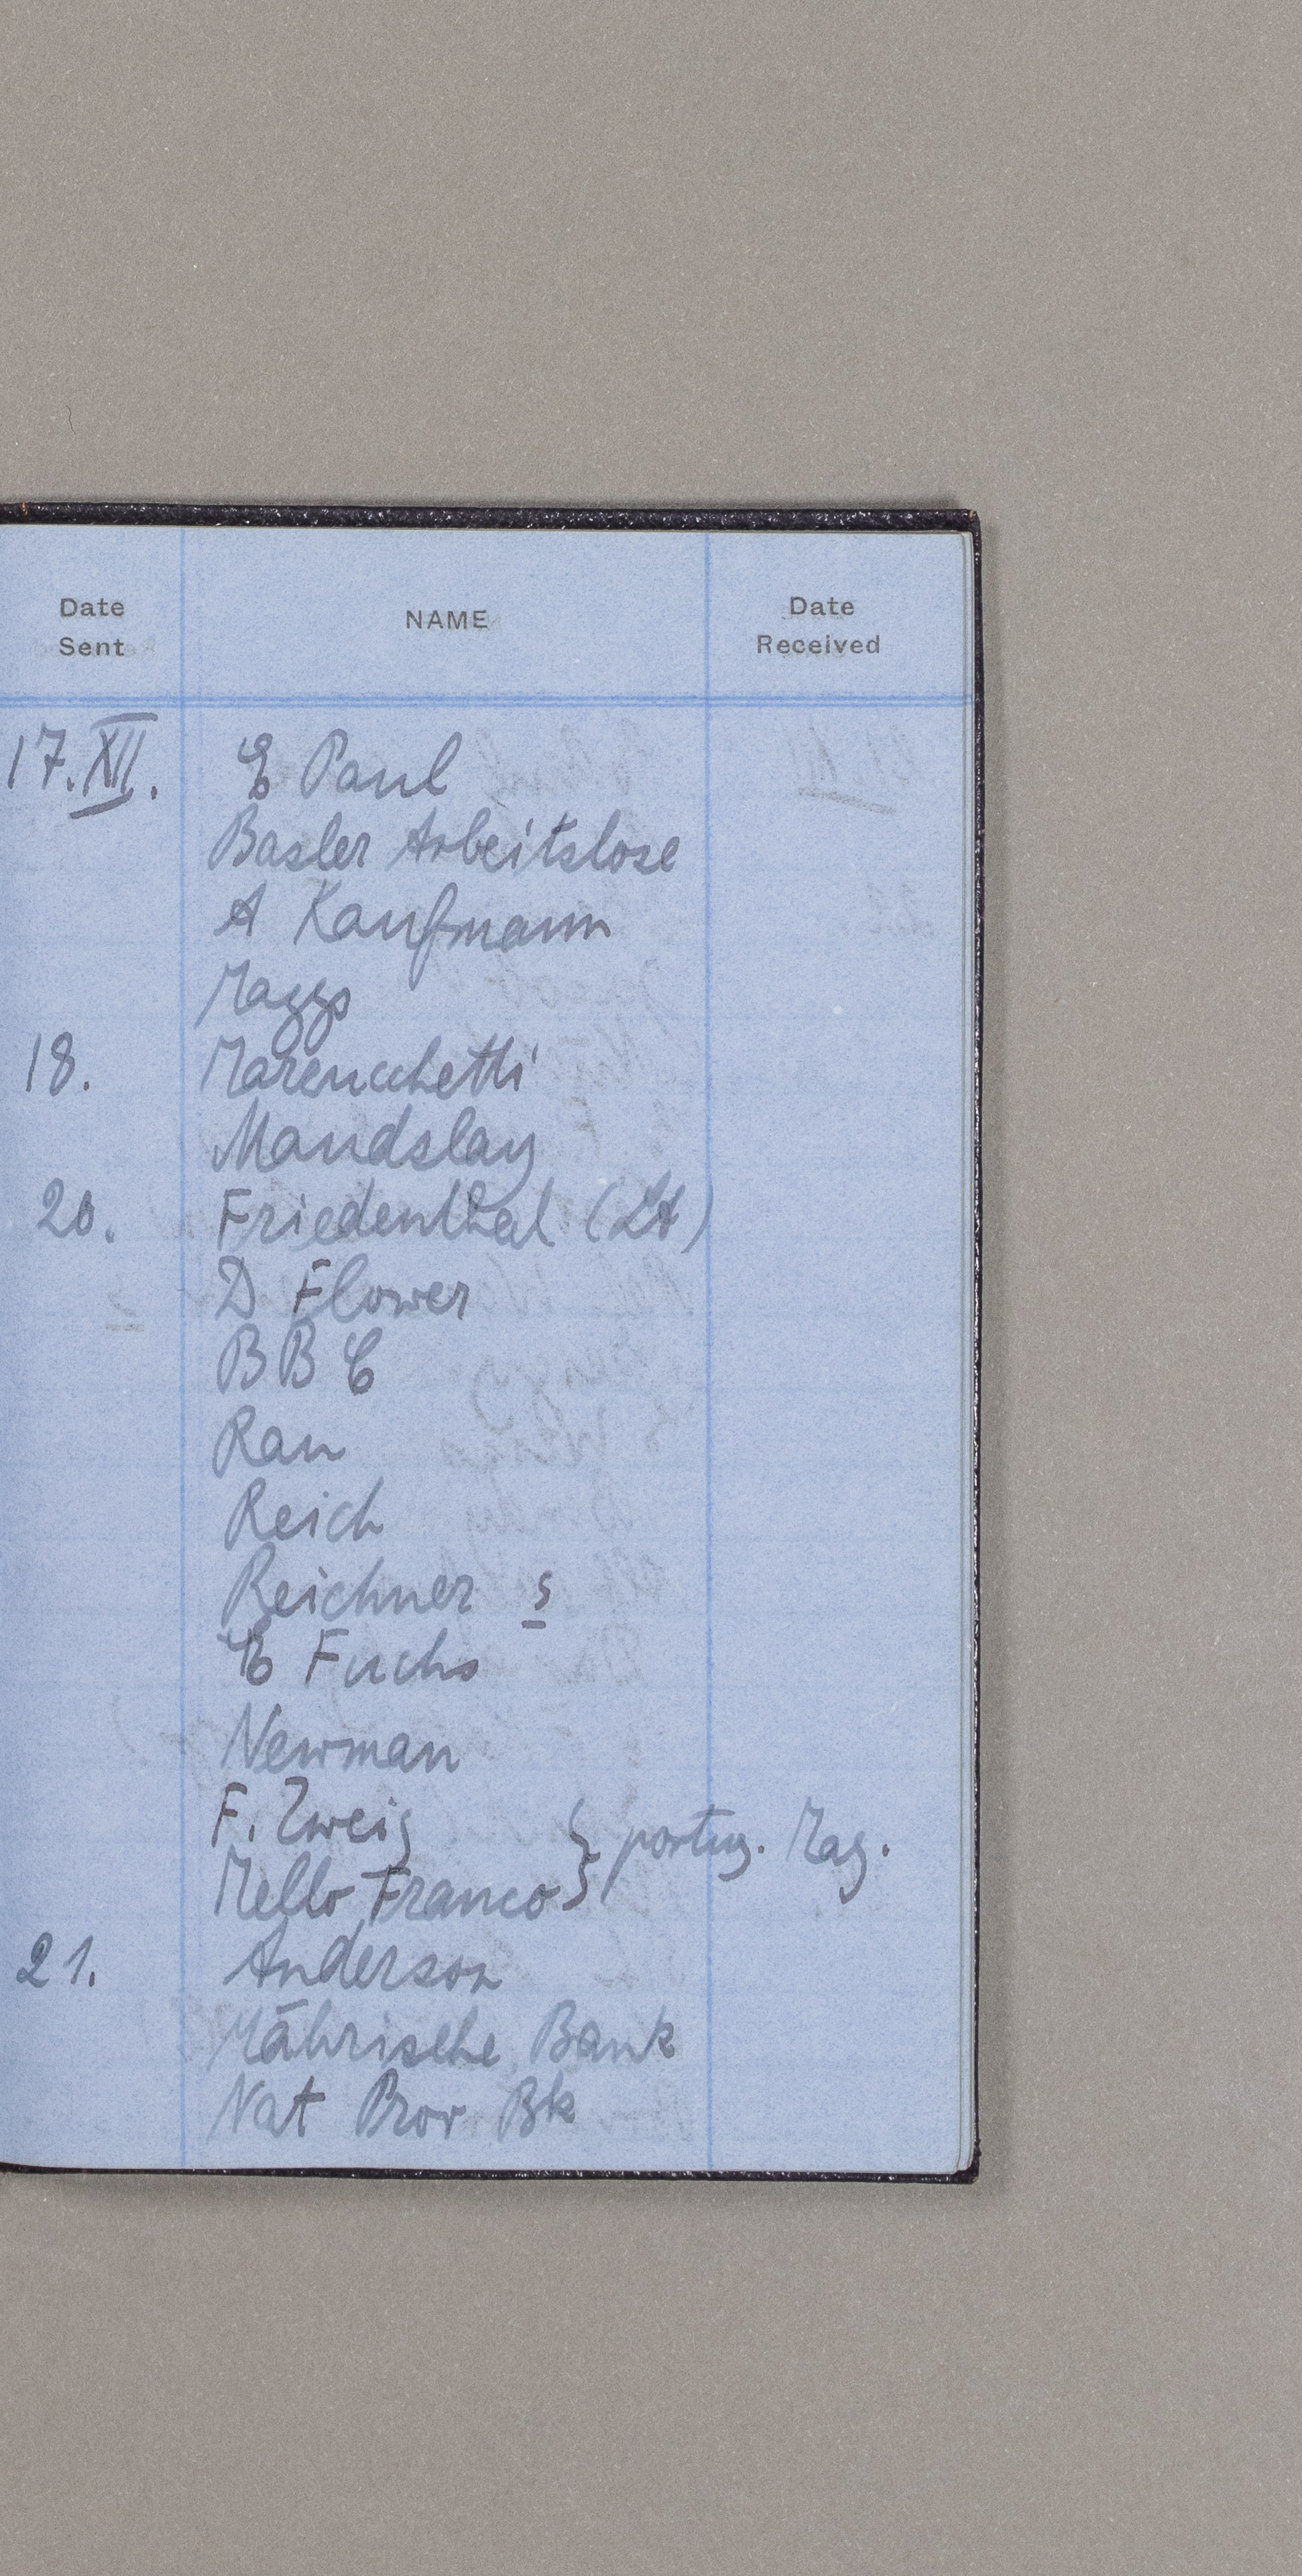 Date Sent NAME Date Received
17.XII. E Paul
Basler Arbeitslose
A Kaufmann
Maggs
18. Marenchetti
Maudslay
20. Friedenthal (Lt)
D Flower
BBC
Rau
Reich
Reichner s
E Fuchs
Newman
F. Zweig
Mello Franco } portug. Mag.
21. Anderson
Mährische Bank
Nat Prov Bk